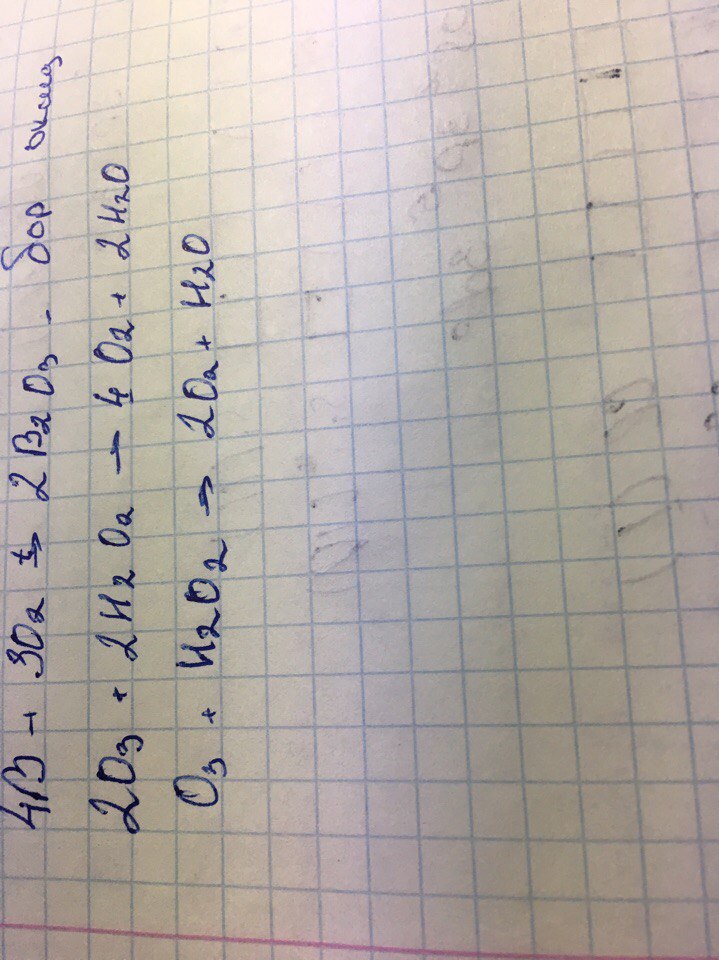 4B + 3O₂ →ᵗ 2B₂O₃ - бор оксид
2O₃ + 2H₂O₂ → 4O₂ + 2H₂O
O₃ + H₂O₂ → 2O₂ + H₂O